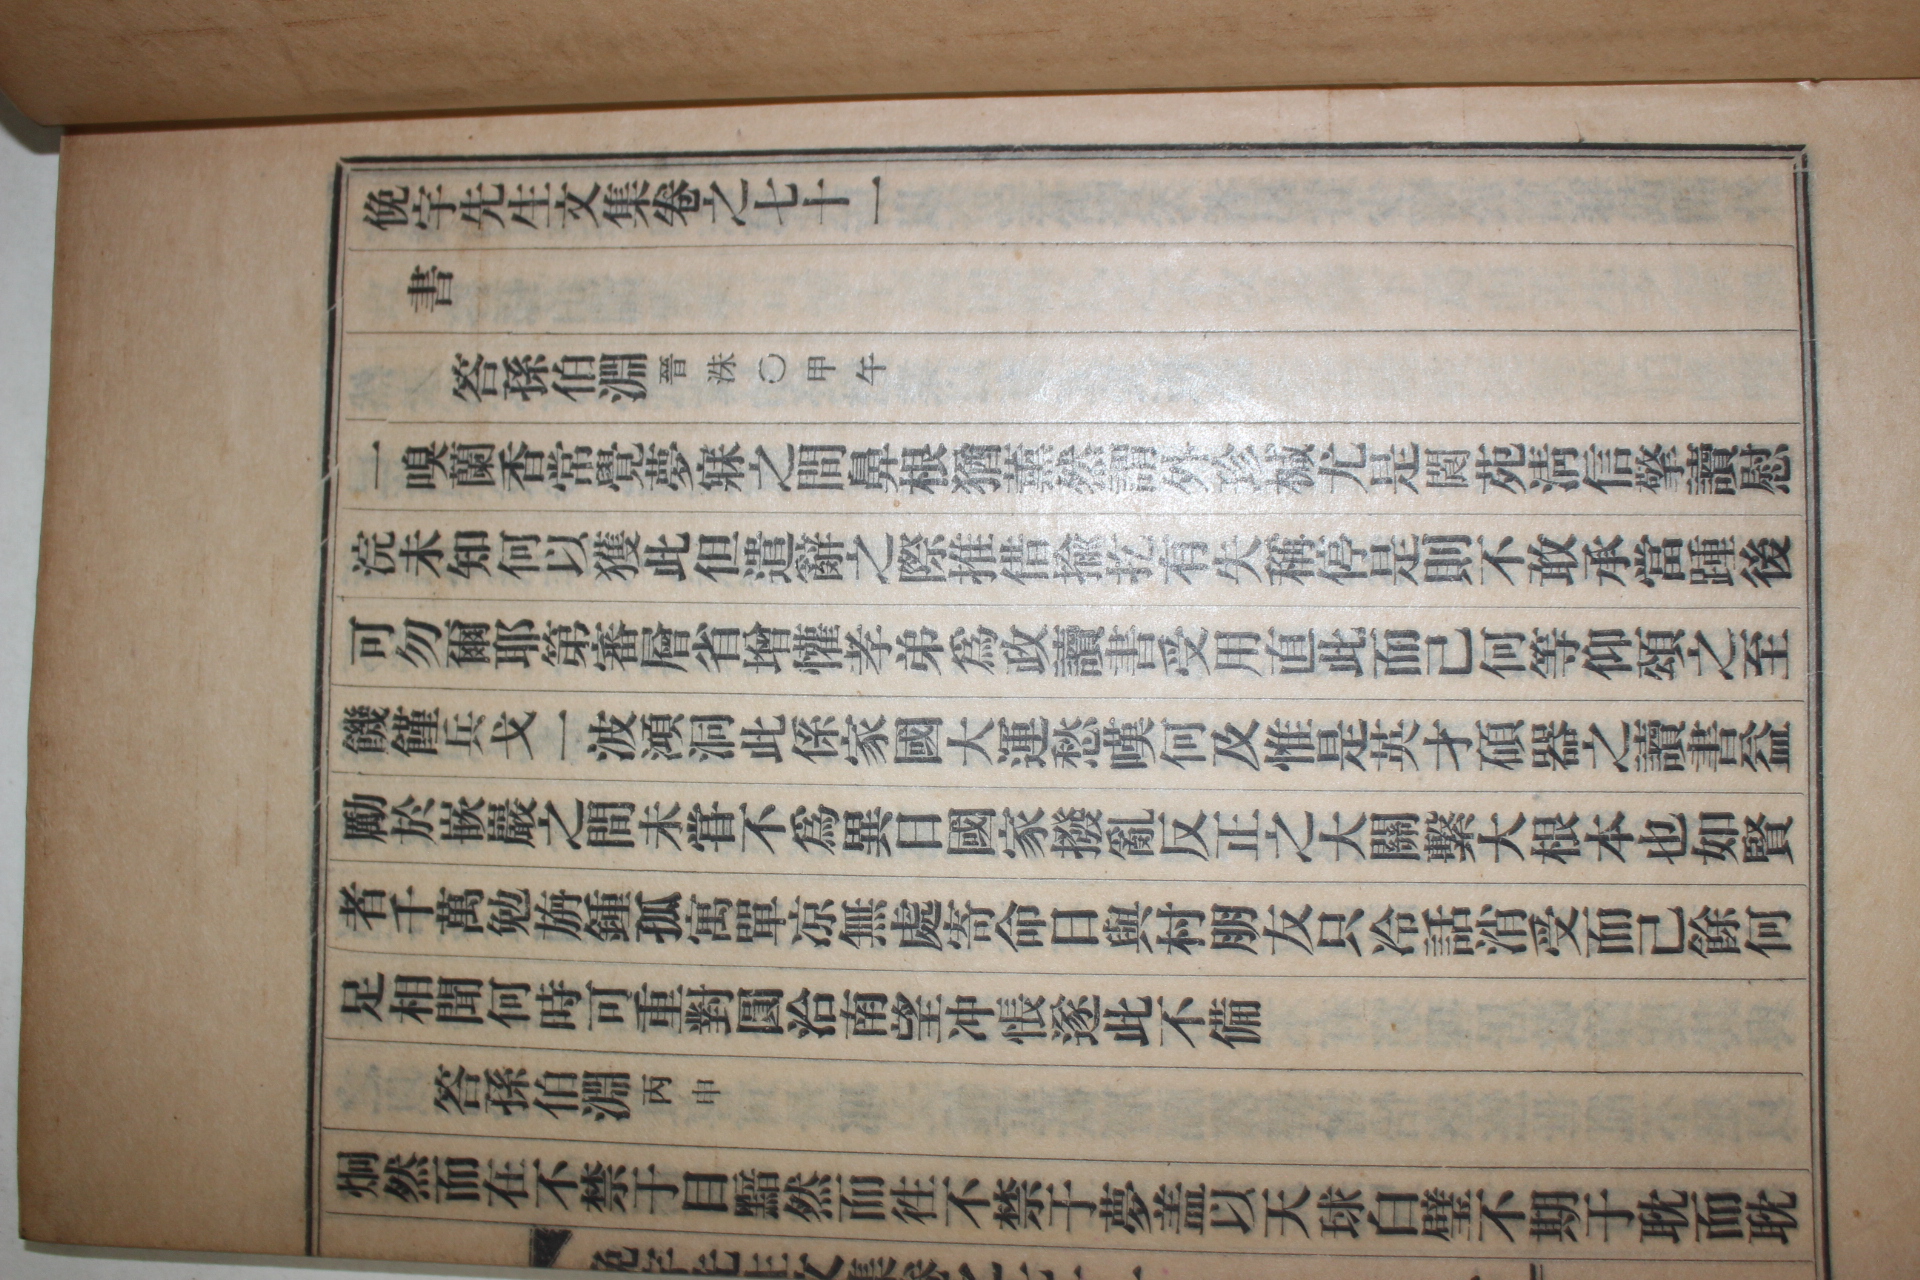 俛宇先生文集卷之七十一
書
答孫伯淵晉洙○甲午
一嗅蘭香常覺夢寐之間鼻根猶薰然謂外珍椷尤是閬苑淸信擎讀慰
浣未知何以獲此但遣辭之際推借揄扢有失稱停是則不敢承當踵後
可勿爾耶第審層省增懽孝弟爲政讀書受用直此而已何等仰頌之至
饑饉兵戈一波澒洞此係家國大運愁嘆何及惟是英才碩器之讀書益
勵於嵌巖之間未甞不爲異日國家撥亂反正之大關繫大根本也如賢
者千萬勉旃鍾孤寓單凉無處寄命日與村朋友只冷話消受而已餘何
足相聞何時可重對圓洽南望冲悵遂此不備
答孫伯淵丙申
烱然而在不禁于目黯然而徃不禁于夢盖以天球白璧不期于耽而耽
俛宇先生文集卷之七十一